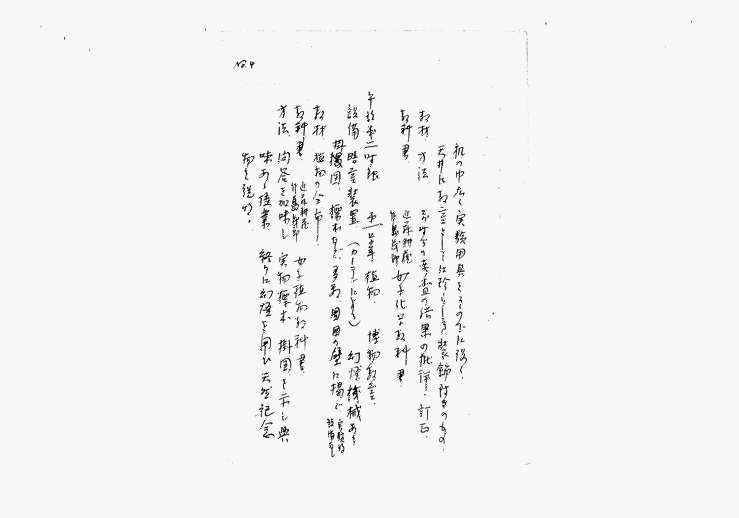 No.4
机の巾広く実験用具をその下に強く
天井は教室として珍らしき装飾付きのもの、
教材、方法、 前時分の考査の結果の批評、訂正、
教科書、 近藤耕蔵 女子化学教科書、
午前第二時限 第一学年 植物、 博物教室、
設備 暗室装置、(カーテンによる) 幻燈機械あり
掛図、標本など多数周囲の壁に掲ぐ 実験用設備なし
教材、植物の分布、
教科書、 女子植物教科書、
方法、問答を加味し実物標本 掛図を示し興
味ある授業 終りに幻燈を用ひ天然記念
物を説明。